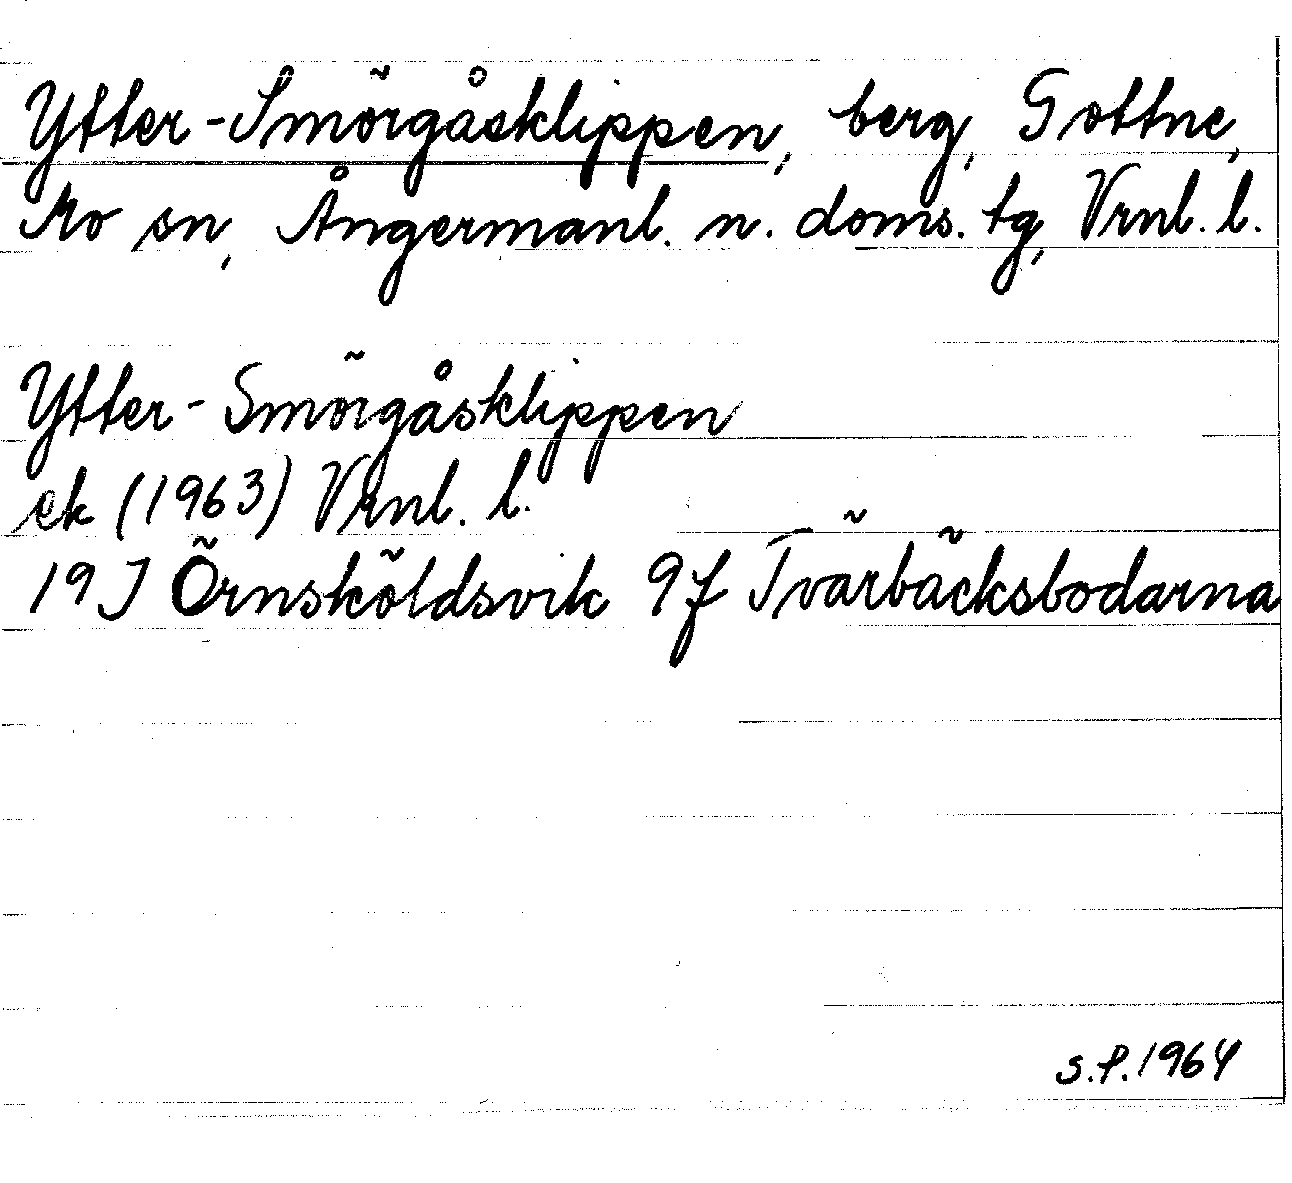 Ytter-Smörgåsklippen, berg, Gottne,
Mo sn, Ångermanl. n. doms. tg, Vrnl. l.
Ytter-Smörgåsklippen
ek (1963) Vrnl. l.
19J Örnsköldsvik 9f Tvärbäcksbodarna
S.P. 1964